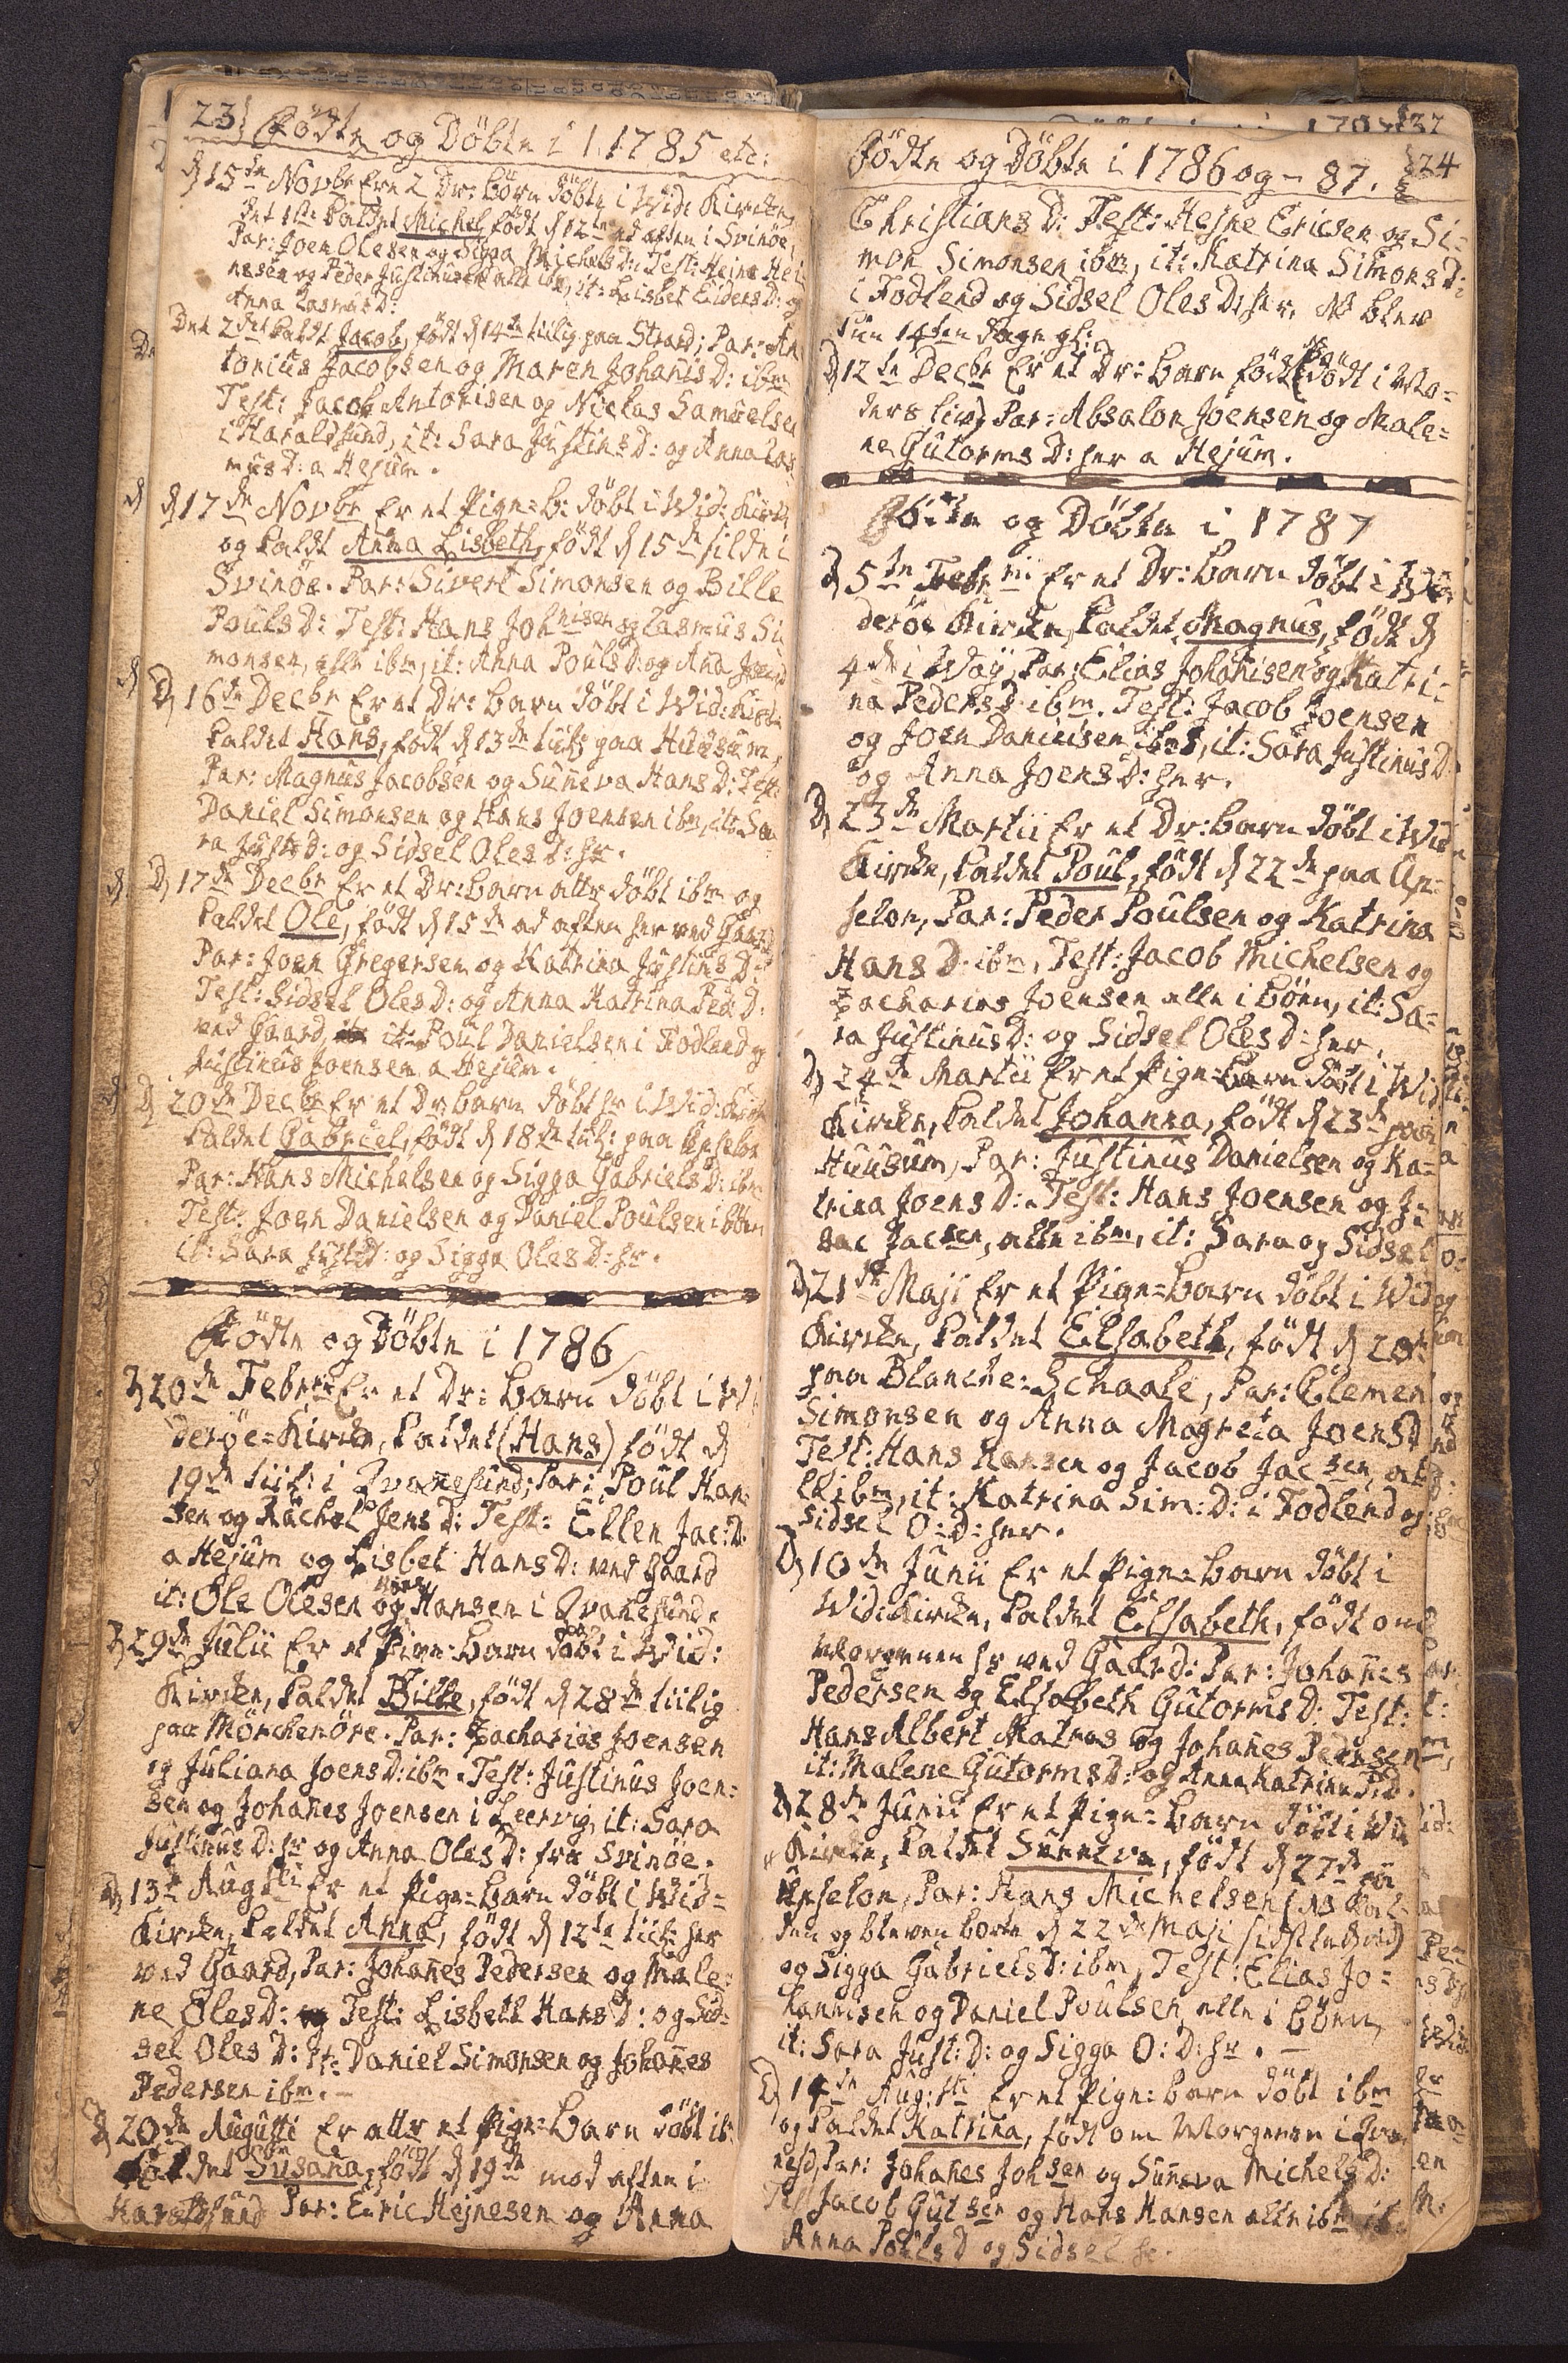 23
Födte og Döbte i 1785 etc:
D 15de Novbr Ere 2 Dr: Börn döbte i Wid: Kirche,
Det 1ste kaldet Michel, födt d 12te ad aften i Svinöe,
Par: Joen Olesen og Sigga Michels D: Test: Heine Hei
nesen og Peder Justinusen alle ibm, it: Lisbet Eiders D: og
Anna Rasmus D:
Det 2det kaldt Jacob, födt d 14de tiilig paa Strand; Par: An
tonius Jacobsen og Maren Johanis D: ibm
Test: Jacob Antonisen og Niclas Samuelsen
i Haraldsund, it: Sara Justins D: og Anna Ras
mus D: a Hejum.
D 17de Novbr Er et Pige=b: döbt i Wid: Kirche
og kaldt Anna Lisbeth, födt d 15de silde i
Svinöe. Par: Sivert Simonsen og Bille
Pouls D: Test: Hans Johnisen og Rasmus Si
monsen, alle ibm, it: Anna Pouls D: og Ana Joens D
D 16de Decbr Er et Dr: barn döbt i Wid: Kirche
kaldet Hans, födt d 13de tiil: paa Huusum,
Par: Magnus Jacobsen og Suneva Hans D: Test:
Daniel Simonsen og Hans Joensen ibm, it: Sa
ra Just: D: og Sidsel Oles D: hr.
D 17de Decbr Er et Dr: barn atter döbt ibm og
kaldet Ole, födt d 15de ad aften her ved Gaard
Par: Joen Gregersen og Katrina Justins D:
Test: Sidsel Oles D: og Anna Katrina Ped: D:
ved Gaard, it: Poul Danielsen i Fodland og
Justinus Joensen a Hejum.
D 20de Decbr Er et Dr: barn döbt hr i Wid: Kirche
kaldet Gabriel, födt d 18de tiil: paa Ypselon
Par: Hans Michelsen og Sigga Gabriels D: ibm
Test: Joen Danielsen og Daniel Poulsen i Börn
it: Sara Just: D: og Sigga Oles D: hr.
Födte og Döbte i 1786
D 20de Febr: Er et Dr: barn döbt i Wi
deröe=Kirche, kaldet (Hans) födt d
19de tiil: i Qvanesund; Par: Poul Han
sen og Rachel Jens D: Test: Ellen Jac: D:
a Hejum og Lisbet Hans D: ved Gaard
it: Ole Olesen og Hansen i Qvanesund.
D 29de Julii Er et Pige=barn döbt i Wid:
Kirche, kaldet Bille, födt d 28de tiilig
paa Mörchenöre. Par: Zacharias Joensen
og Juliana Joens D: ibm. Test: Justinus Joen=
sen og Johanes Joensen i Leervig, it: Sara
Justinus D: hr og Anna Oles D: fra Svinöe.
D 13de Augsti Er et Pige=barn döbt i Wid=
Kirche, kaldet Anna, födt d 12te tiil: her
ved Gaard, Par: Johanes Pedersen og Male=
ne Oles D: Test: Lisbeth Hans D: og Sid=
sel Oles D: It: Daniel Simonsen og Johanes
Pedersen ibm.
D 20de Augusti Er atter et Pige=barn döbt ib:
kaldet Susana, födt d 19de mod aften i
Haraldsund Par: Eric Hejnesen og Anna
24
Födte og Döbte i 1786 og - 87.
Christians D: Test: Hejne Ericsen og Si=
mon Simonsen ibm, it: Katrina Simons D:
i Fodlend og Sidsel Oles D: her. NB blev
kun 14ten Dage gl:
D 12te Decbr Er et Dr: barn födt (NB död i Mo=
ders liv) Par: Absalon Joensen og Male=
ne Gutorms D: her a Hejum.
Födte og Döbte i 1787
D 5te Febr Er et Dr: barn döbt i Wi
deröe Kirche, kaldet Magnus, födt d
4de i Waÿ, Par: Elias Johanisen og Katri=
na Peders D: ibm. Test: Jacob Joensen
og Joen Danielsen ibm, it: Sara Justinus D:
og Anna Joens D: her.
D 23de Martii Er et Dr: barn döbt i Wid
Kirche, kaldet Poul, födt d 22de paa Üp=
selon, Par: Peder Poulsen og Katrina
Hans D: ibm, Test: Jacob Michelsen og
Zacharias Joensen alle i Börn, it: Sa=
ra Justinus D: og Sidsel Oles D: her.
D 24de Martii Er et Pige=barn döbt i Wid
Kirche, kaldet Johanna, födt d 23de paa
Huusum, Par: Justinus Danielsen og Ka=
trina Joens D: Test: Hans Joensen og J
sac Jacsen, alle ibm, it: Sara og Sidsel
D 21de Maji Er et Pige=barn döbt i Wid
Kirche, kaldet Elsabeth, födt d 20de
paa Blanche=Schaale, Par: Clemen
Simonsen og Anna Magreta Joens D
Test: Hans Hansen og Jacob Jacsen, al
le ibm, it: Katrina Sim: D: i Fodlend og
Sidsel O: D: her.
D 10de Junii Er et Pige=barn döbt i
Wid: Kirche, kaldet Elsabeth, födt om
Morgenen hr ved Gaard: Par: Johanes
Pedersen og Elsabeth Gutorms D: Test:
Hans Albert Matras og Johanes Pedersen
it: Malene Gutorms D: og Anna Katrina P: D.
D 28de Junii Er et Pige=barn döbt i Wid
Kirche, kaldet Sunneva, födt d 27de paa
Üpselon, Par: Hans Michelsen (NB
og bleven borte d 22de Maji sidstleden)
og Sigga Gabriels D: ibm, Test: Elias Jo=
hannisen og Daniel Poulsen, alle i Börn,
it: Sara Just: D: og Sigga O: D: hr.
D 14de Aug:sti Er et Pige=barn döbt ibm
og kaldet Katrina, födt om Morgenen i Qva
nesd, Par: Johanes Johsen og Suneva Michels D:
Test Jacob Gutsen og Hans Hansen alle ibm it:
Anna Pouls D og Sidsel hr.